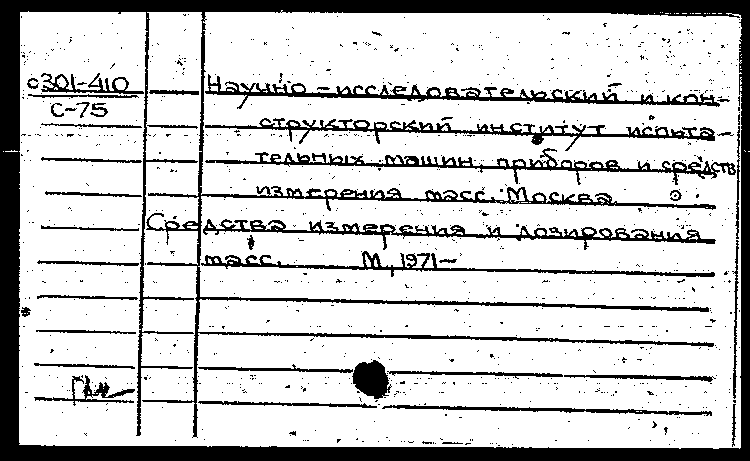 с301-410 Научно-исследовательский и кон-
С-75 структорский институт испыта-
тельных машин, приборов и средств
измерения масс. Москва
Средства измерения и дозирования
масс. М, 1971—